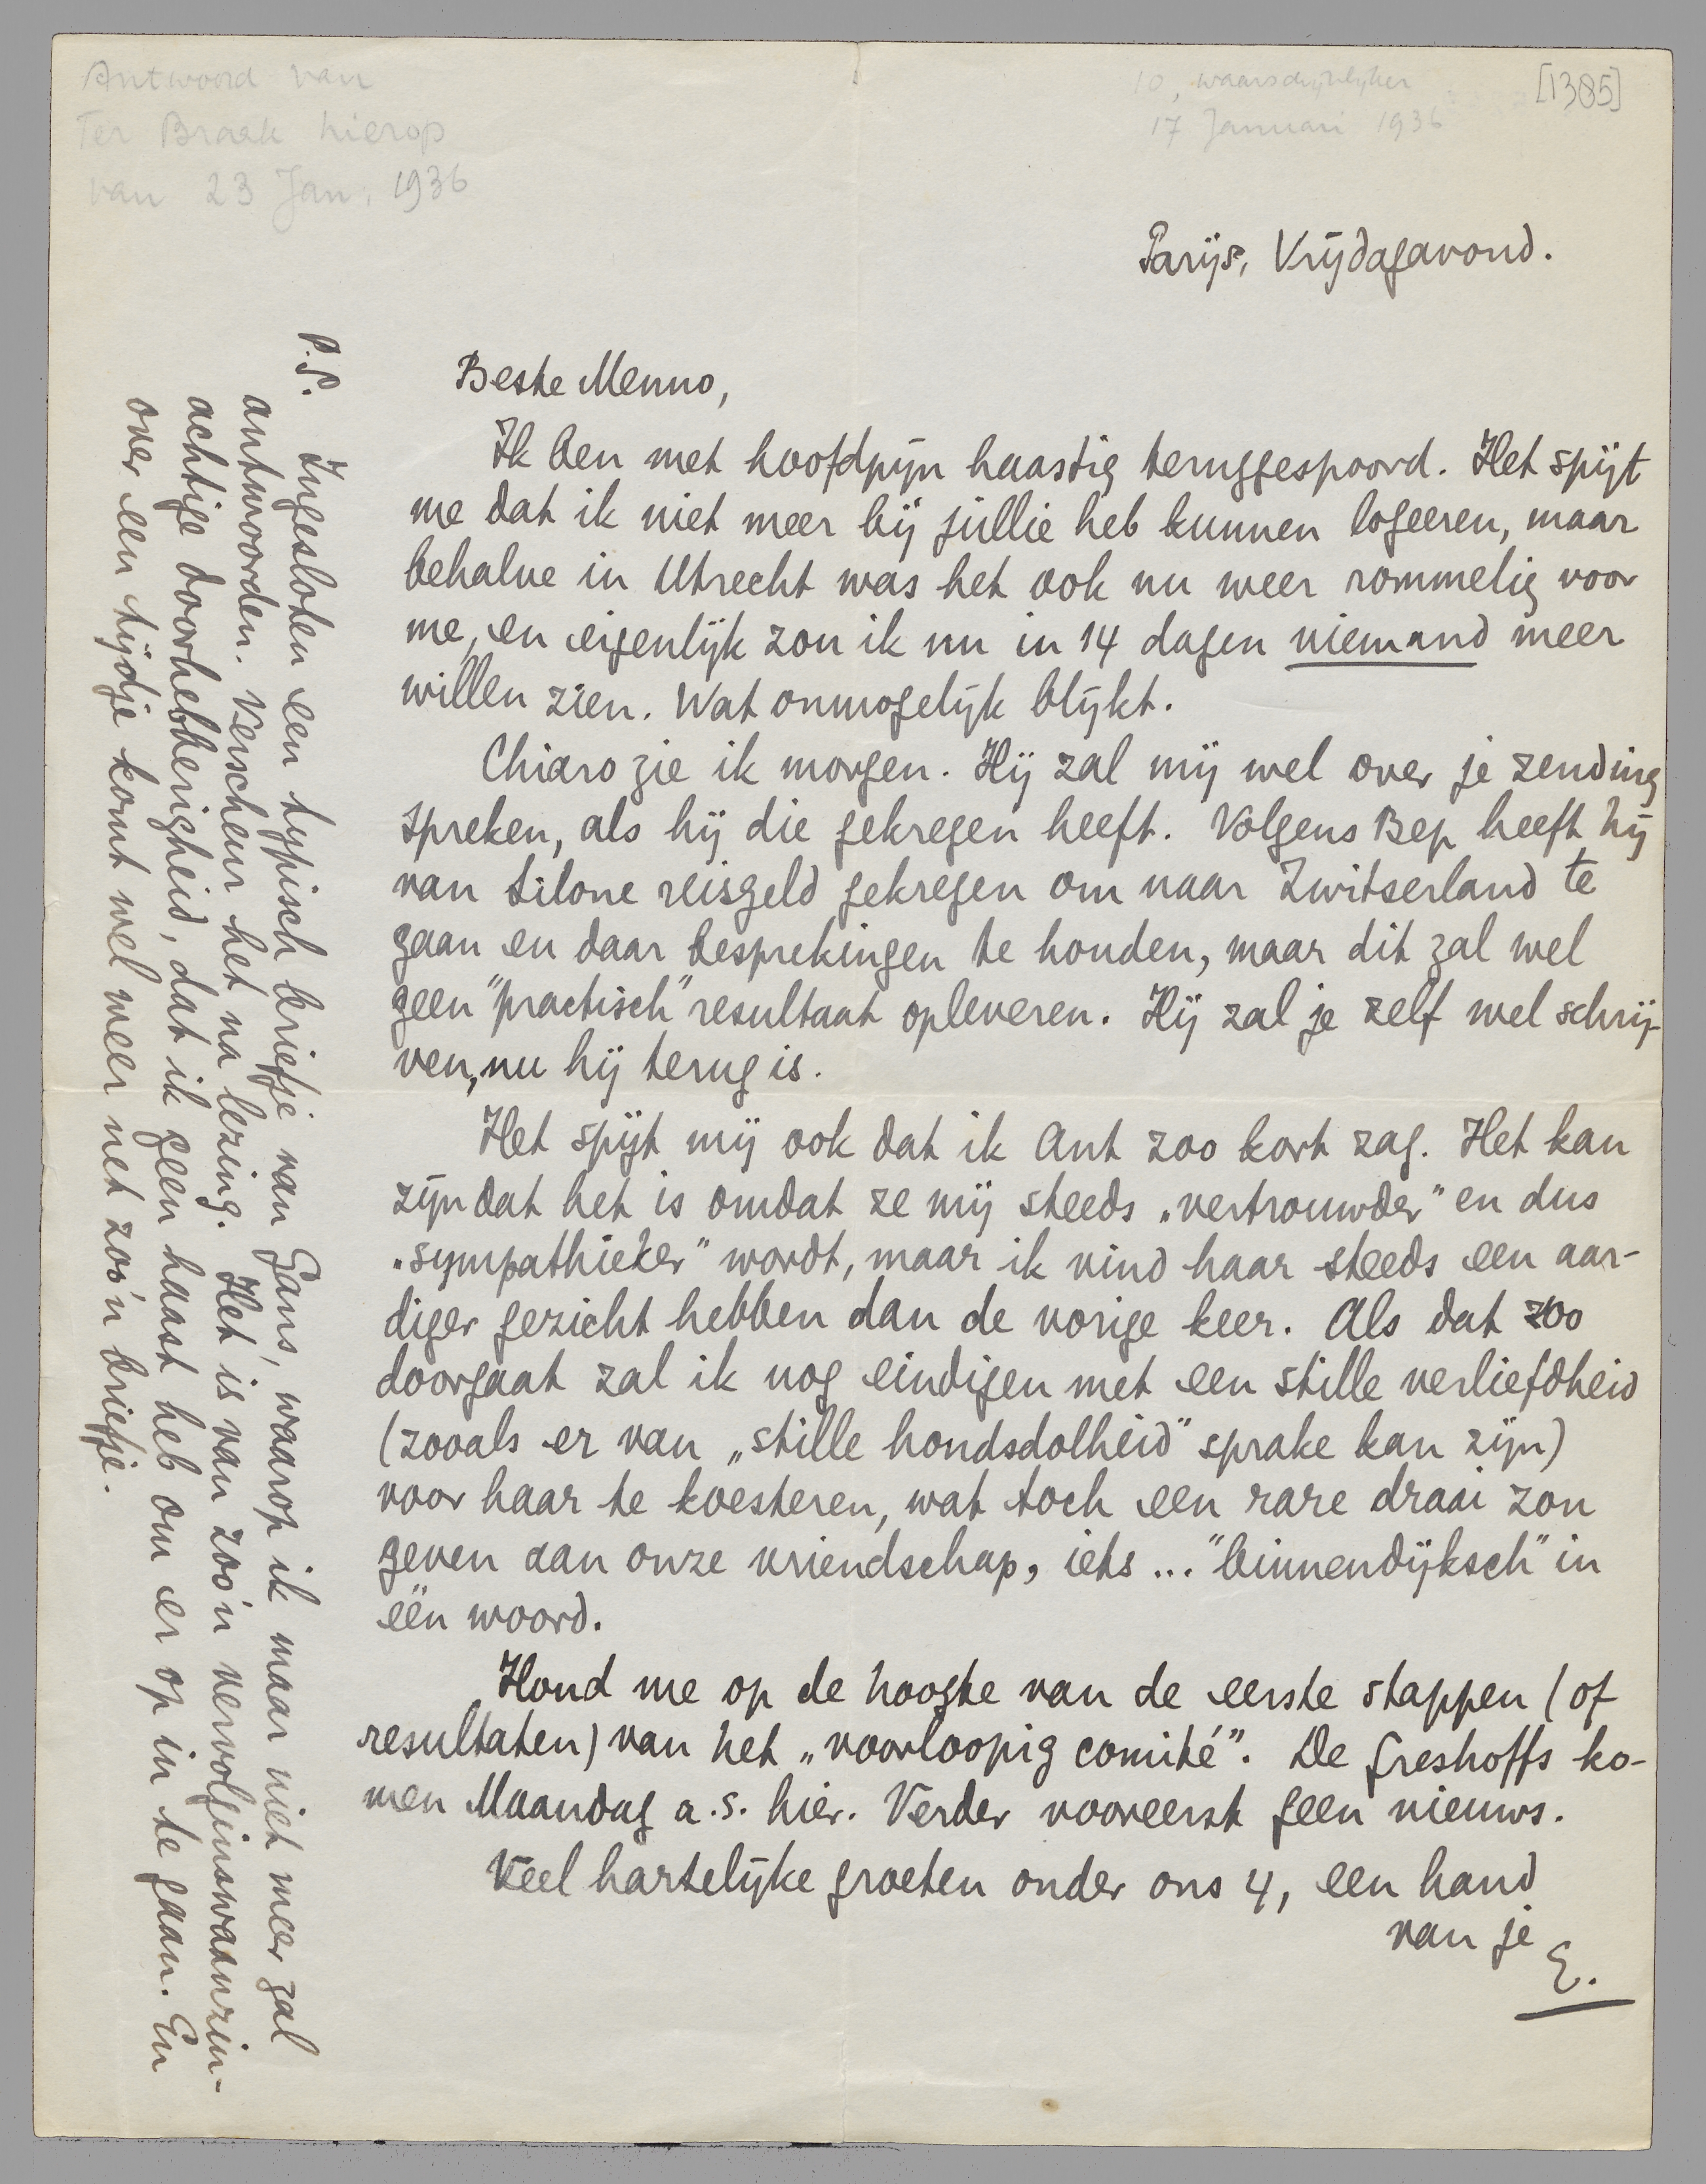 Antwoord van
Ter Braak hierop
van 23 Jan. 1936
10, waarschijnlijker
17 Januari 1936
[1385]
Parijs, Vrijdagavond.
Beste Menno,
Ik ben met hoofdpijn haastig teruggespoord. Het spijt
me dat ik niet meer bij jullie heb kunnen logeeren, maar
behalve in Utrecht was het ook nu weer rommelig voor
me, en eigenlijk zou ik nu in 14 dagen niemand meer
willen zien. Wat onmogelijk blijkt.
Chiaro zie ik morgen. Hij zal mij wel over je zending
spreken, als hij die gekregen heeft. Volgens Bep heeft hij
van Silone reisgeld gekregen om naar Zwitserland te
gaan en daar besprekingen te houden, maar dit zal wel
geen "practisch" resultaat opleveren. Hij zal je zelf wel schrij-
ven, nu hij terug is.
Het spijt mij ook dat ik Ant zoo kort zag. Het kan
zijn dat het is omdat ze mij steeds „vertrouwder" en dus
„sympathieker" wordt, maar ik vind haar steeds een aar-
diger gezicht hebben dan de vorige keer. Als dat zoo
doorgaat zal ik nog eindigen met een stille verliefdheid
(zooals er van „stille hondsdolheid" sprake kan zijn)
voor haar te koesteren, wat toch een rare draai zou
geven aan onze vriendschap, iets ... "binnendijksch" in
één woord.
Houd me op de hoogte van de eerste stappen (of
resultaten) van het „voorloopig comité". De Greshoffs ko-
men Maandag a.s. hier. Verder vooreerst geen nieuws.
Veel hartelijke groeten onder ons 4, een hand
van je
E.
P.S. Ingesloten een typisch briefje van Gans, waarop ik maar niet meer zal
antwoorden. Verscheur het na lezing. Het is van zoo'n vervolginswaanzin-
achtige doorhebberigheid, dat ik geen haast heb om er op in te gaan. En
over een tijdje komt wel weer net zoo'n briefje.